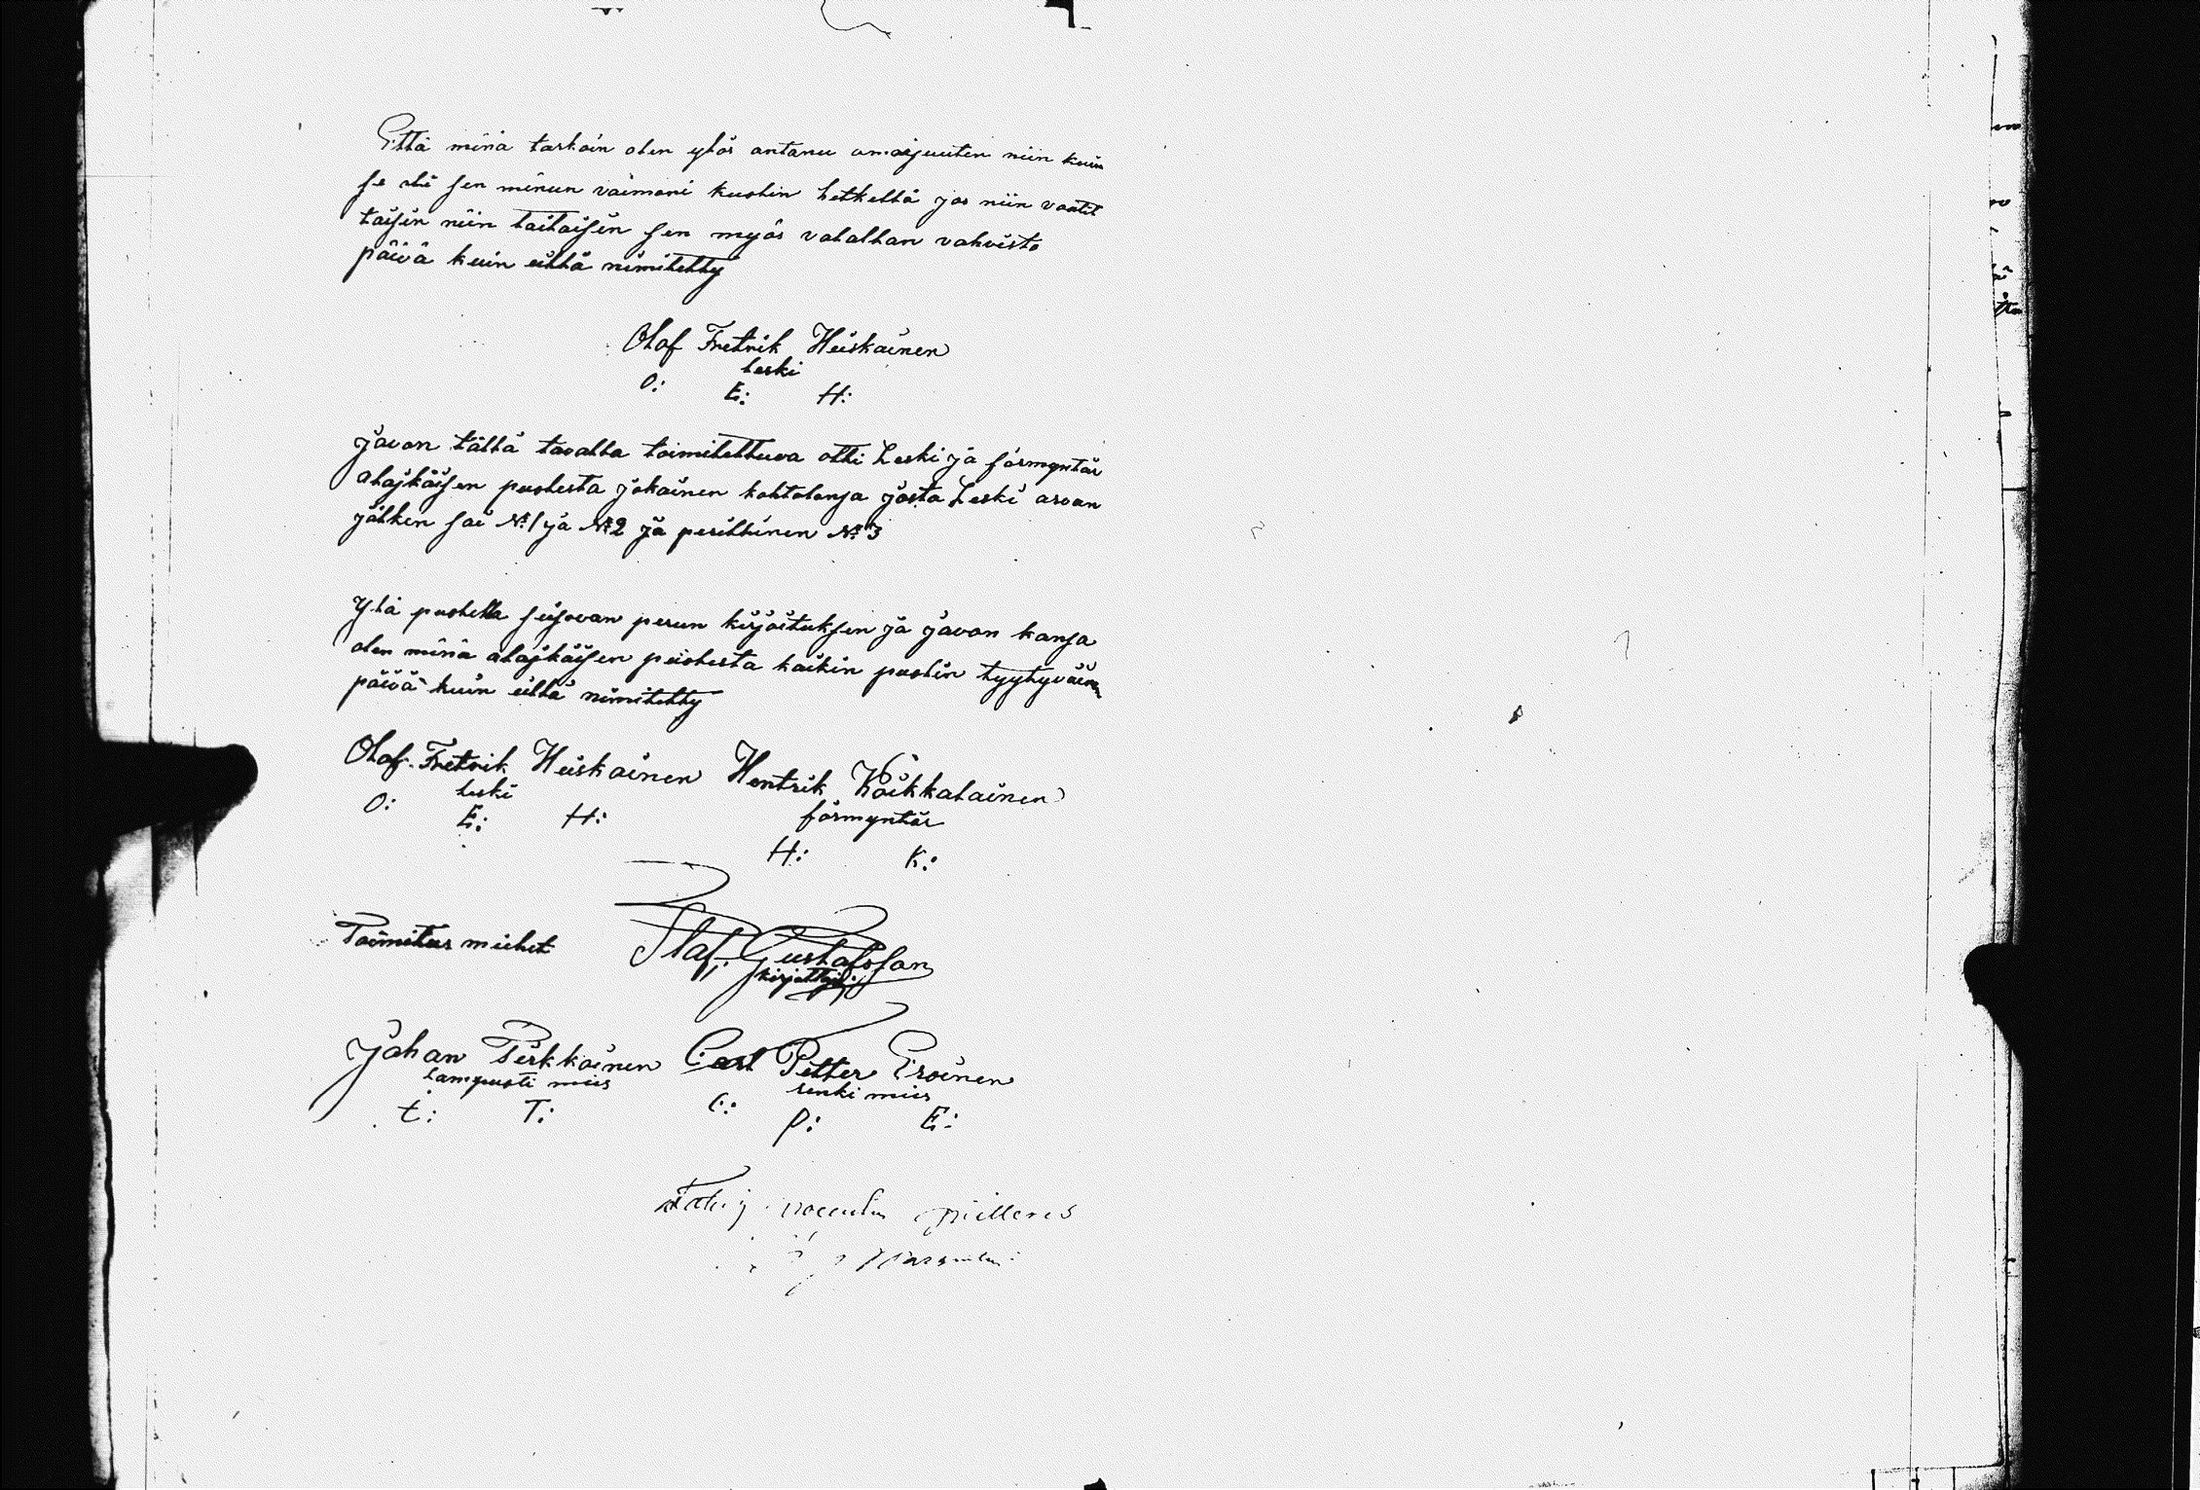 Että minä tarkoin olen ylös antanu omaisuuten niin kuin
se oli sen minun vaimoni kuolin hetkellä jos niin vaatit
taisin niin taitaisin sen myös valallan vahvista
päivä kuin eillä nimitetty
Olof Fretrik Heiskainen
leski
O: E: H:
Jaon tällä tavalla toimitettuva otti Leski ja förmyntär
alajkäisen puolesta jokainen kohtolonsa josta Leski arvan
jälken sai No 1 ja No 2 ja perillinen No 3
Ylä puolella seisovan perun kirjoituksen ja javon kansa
olen minä alajkäisen puolesta kaikin puolin tyytyväin
päivä kuin eillä nimitetty
Olof Fretrik Heiskainen Hentrik Koikkalainen
leski förmyntär
O: E: H: H: K:
Toimitus miehet Olaf Gustafsson
kirjottaja
Johan Tirkkoinen Carl Petter Eroinen
lampuoti mies renki mies
t: T: C: P: E: